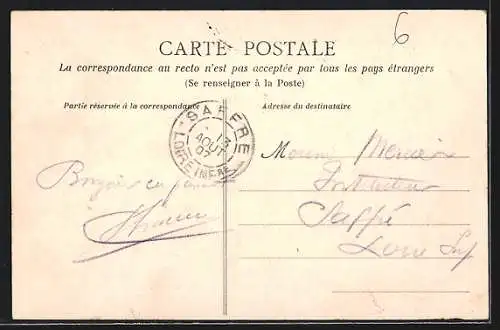 6
CARTE POSTALE
La correspondance au recto n'est pas acceptée par tous les pays étrangers
(Se renseigner à la Poste)
Partie réservée à la correspondance
Adresse du destinataire
SAFFRE
13
AOUT
07
LOIRE INFRE
Bonjour en
Mercier
Instituteur
Saffré
Loire Inf